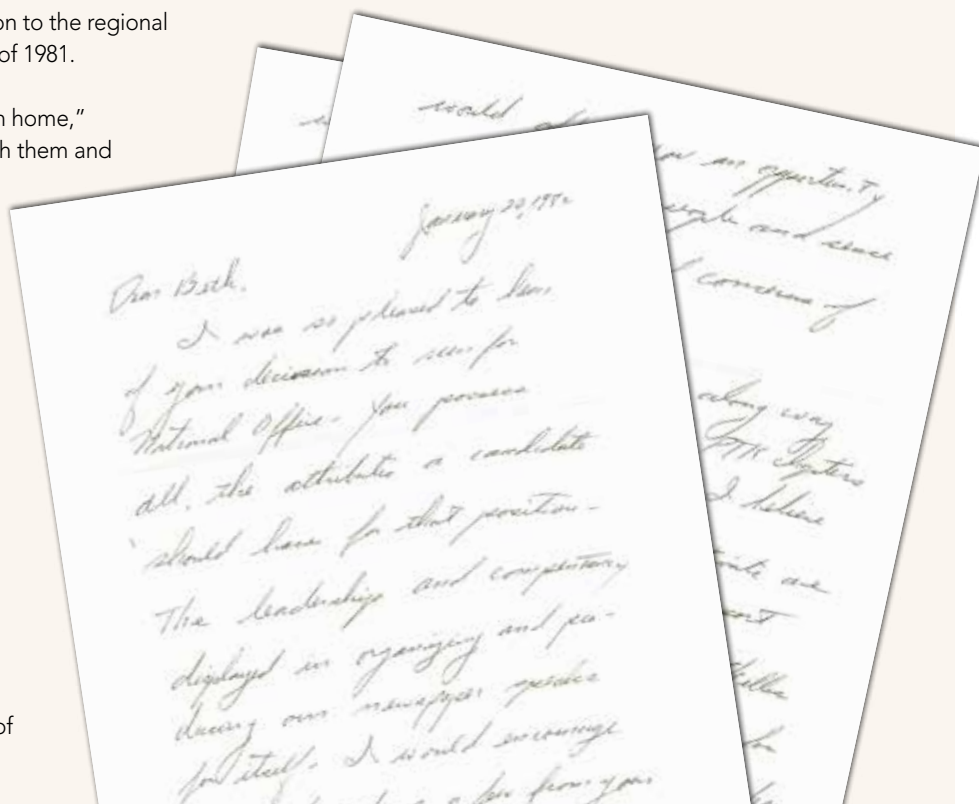 on to the regional
of 1981.
n home,”
h them and
of
January 20, 198
Dear Beth,
I was so pleased to hear
of your decision to run for
National Office. You possess
all the attributes a candidate
should have for that position.
The leadership and competency
displayed in organizing and pro-
ducing our newspaper speaks
for itself. I would encourage
from your
would
you an opportunity
people and sense
concerns of
along way
PTK Chapters
I believe
are